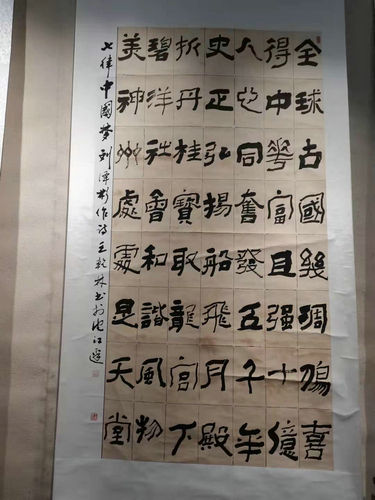 全球古國幾凋傷喜
得中華富且強十億
人心同奮發五千年
史正弘揚船飛月殿
折丹桂寶取龍宮下
碧洋社會和諧風物
美神州處處是天堂
七律中國梦 刘彬作诗王乾林书於沱江邊